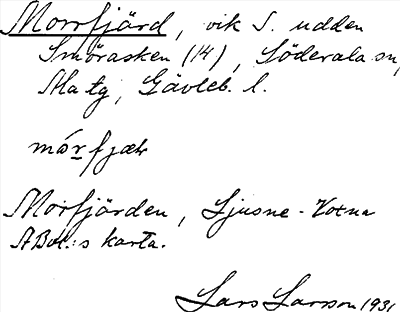 Morrfjärd, vik S. udden
Smörasken (14), Söderala sn,
Ala tg, Gävleb. l.
mórfjæɬr
Morfjärden, Ljusne-Voxna
ABol:s karta.
Lars Larsson 1931